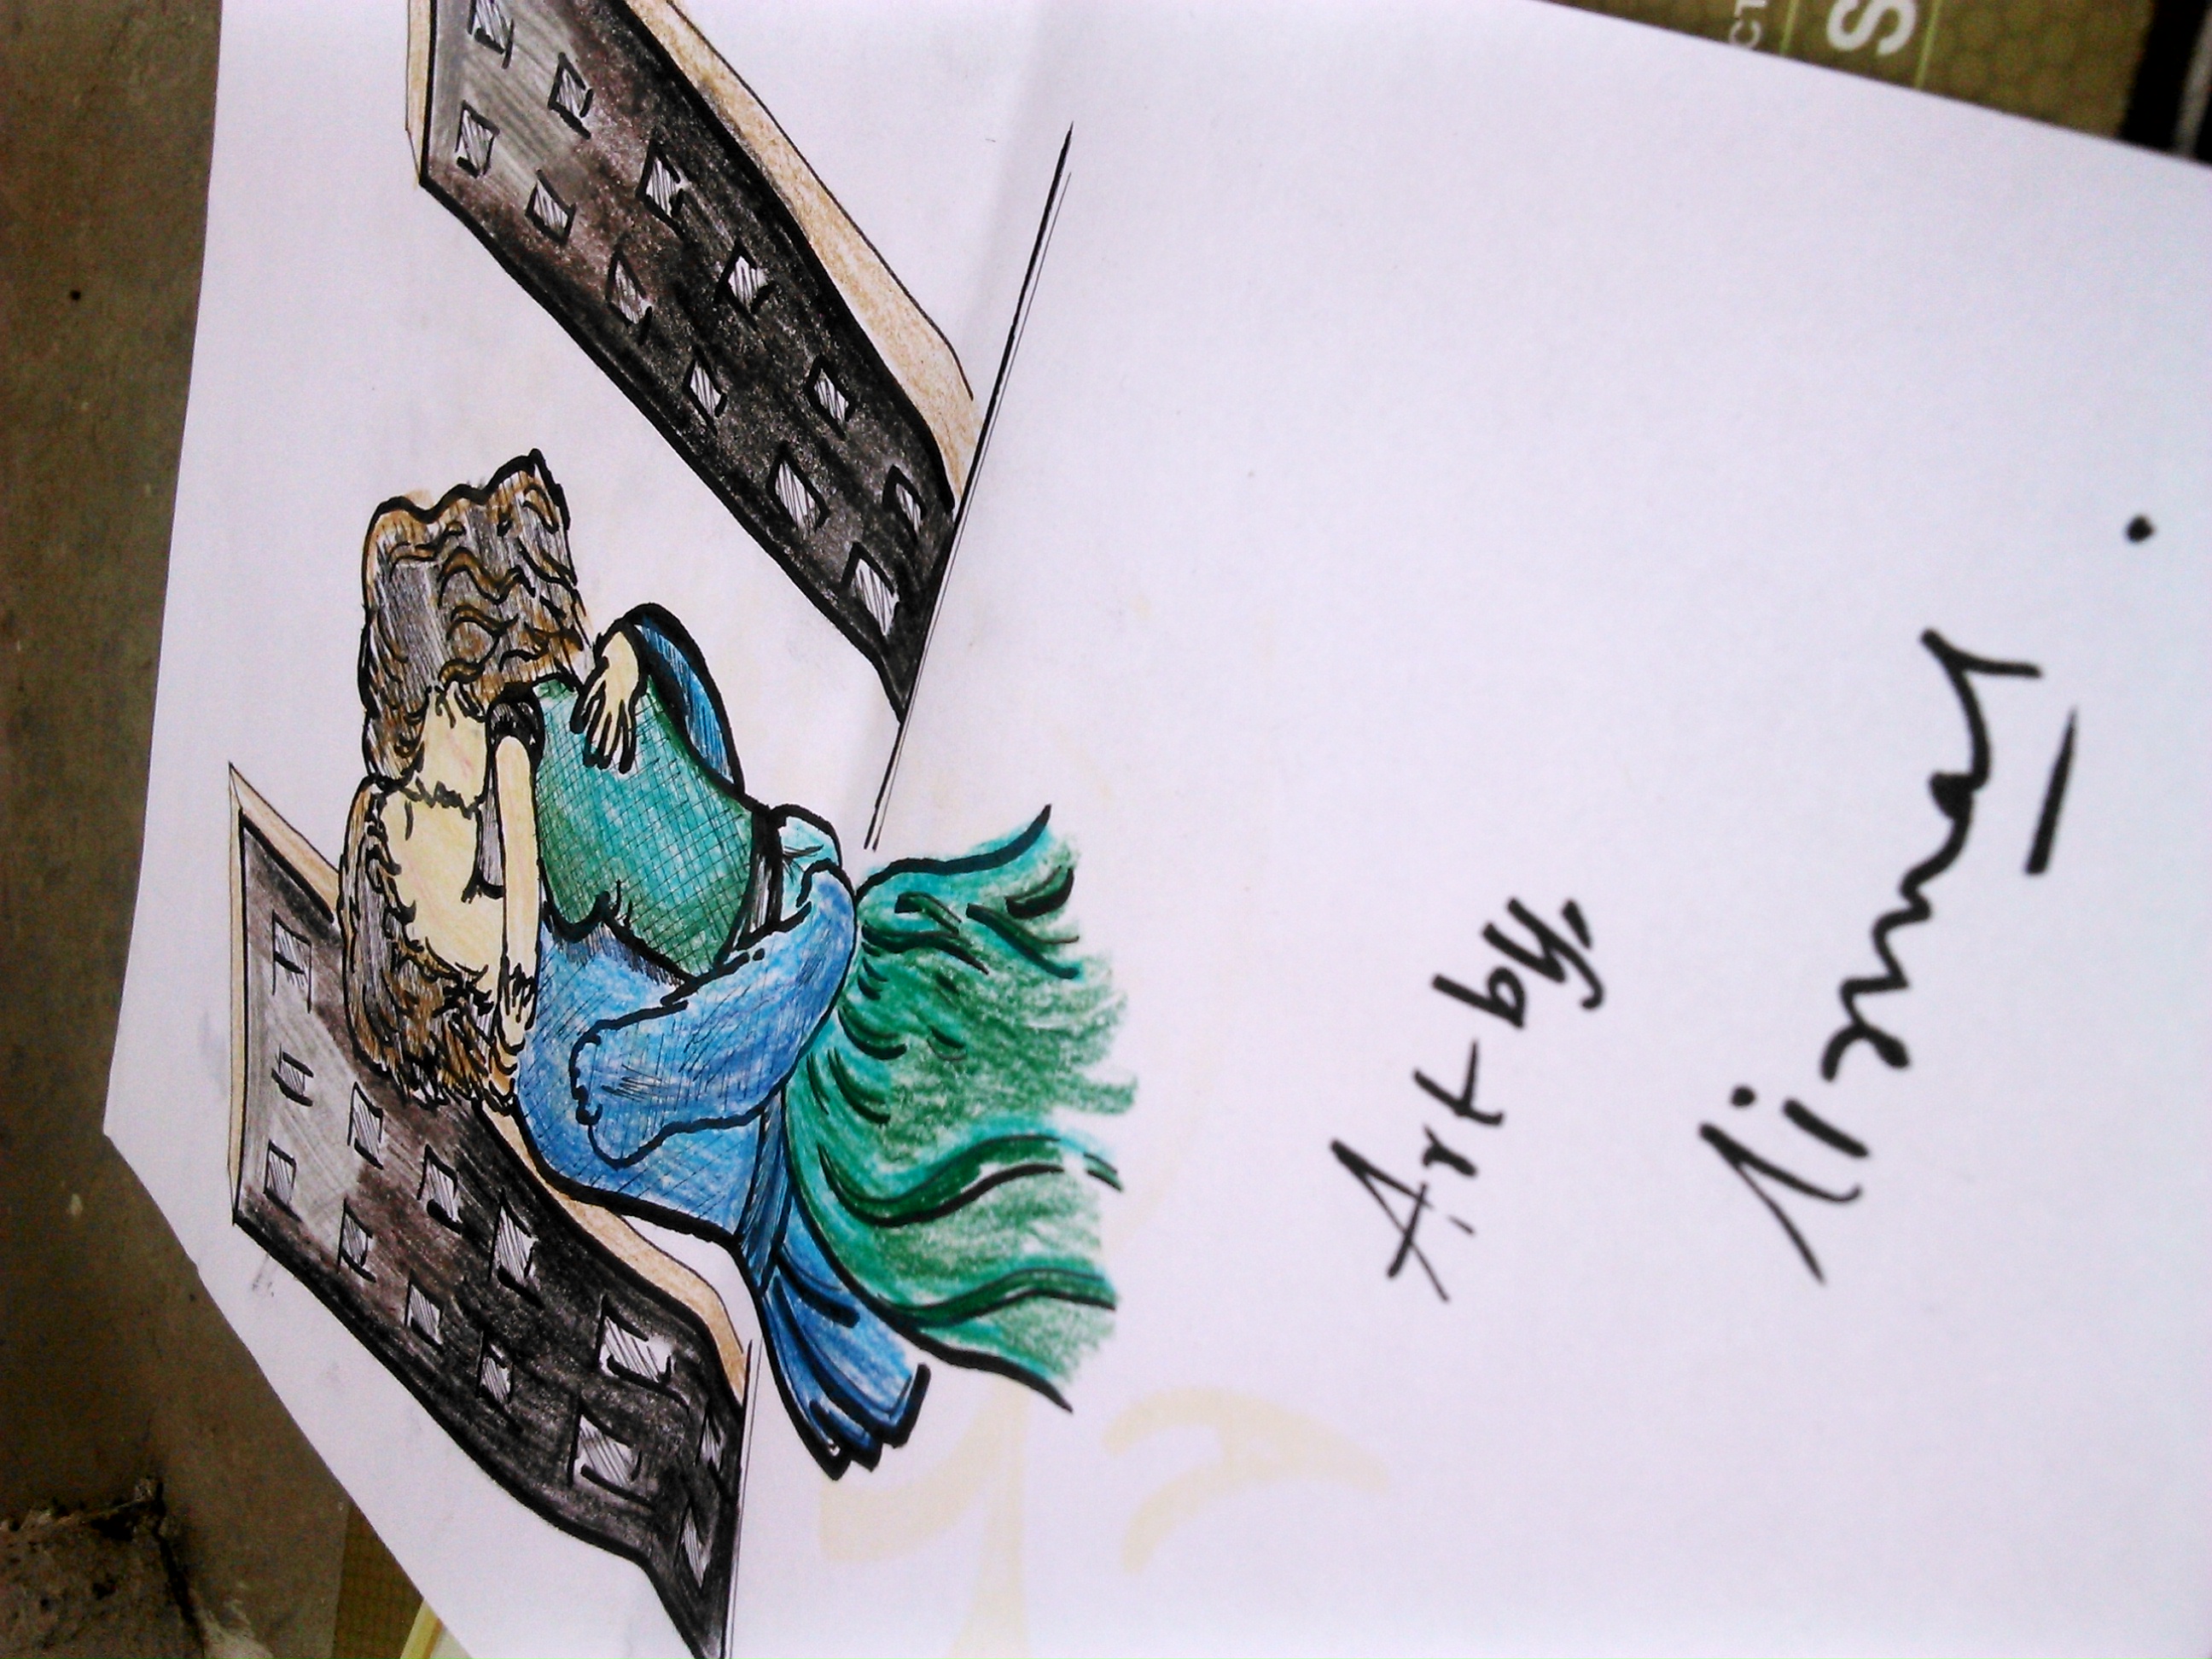 Art by,
Nirmal
CT
S